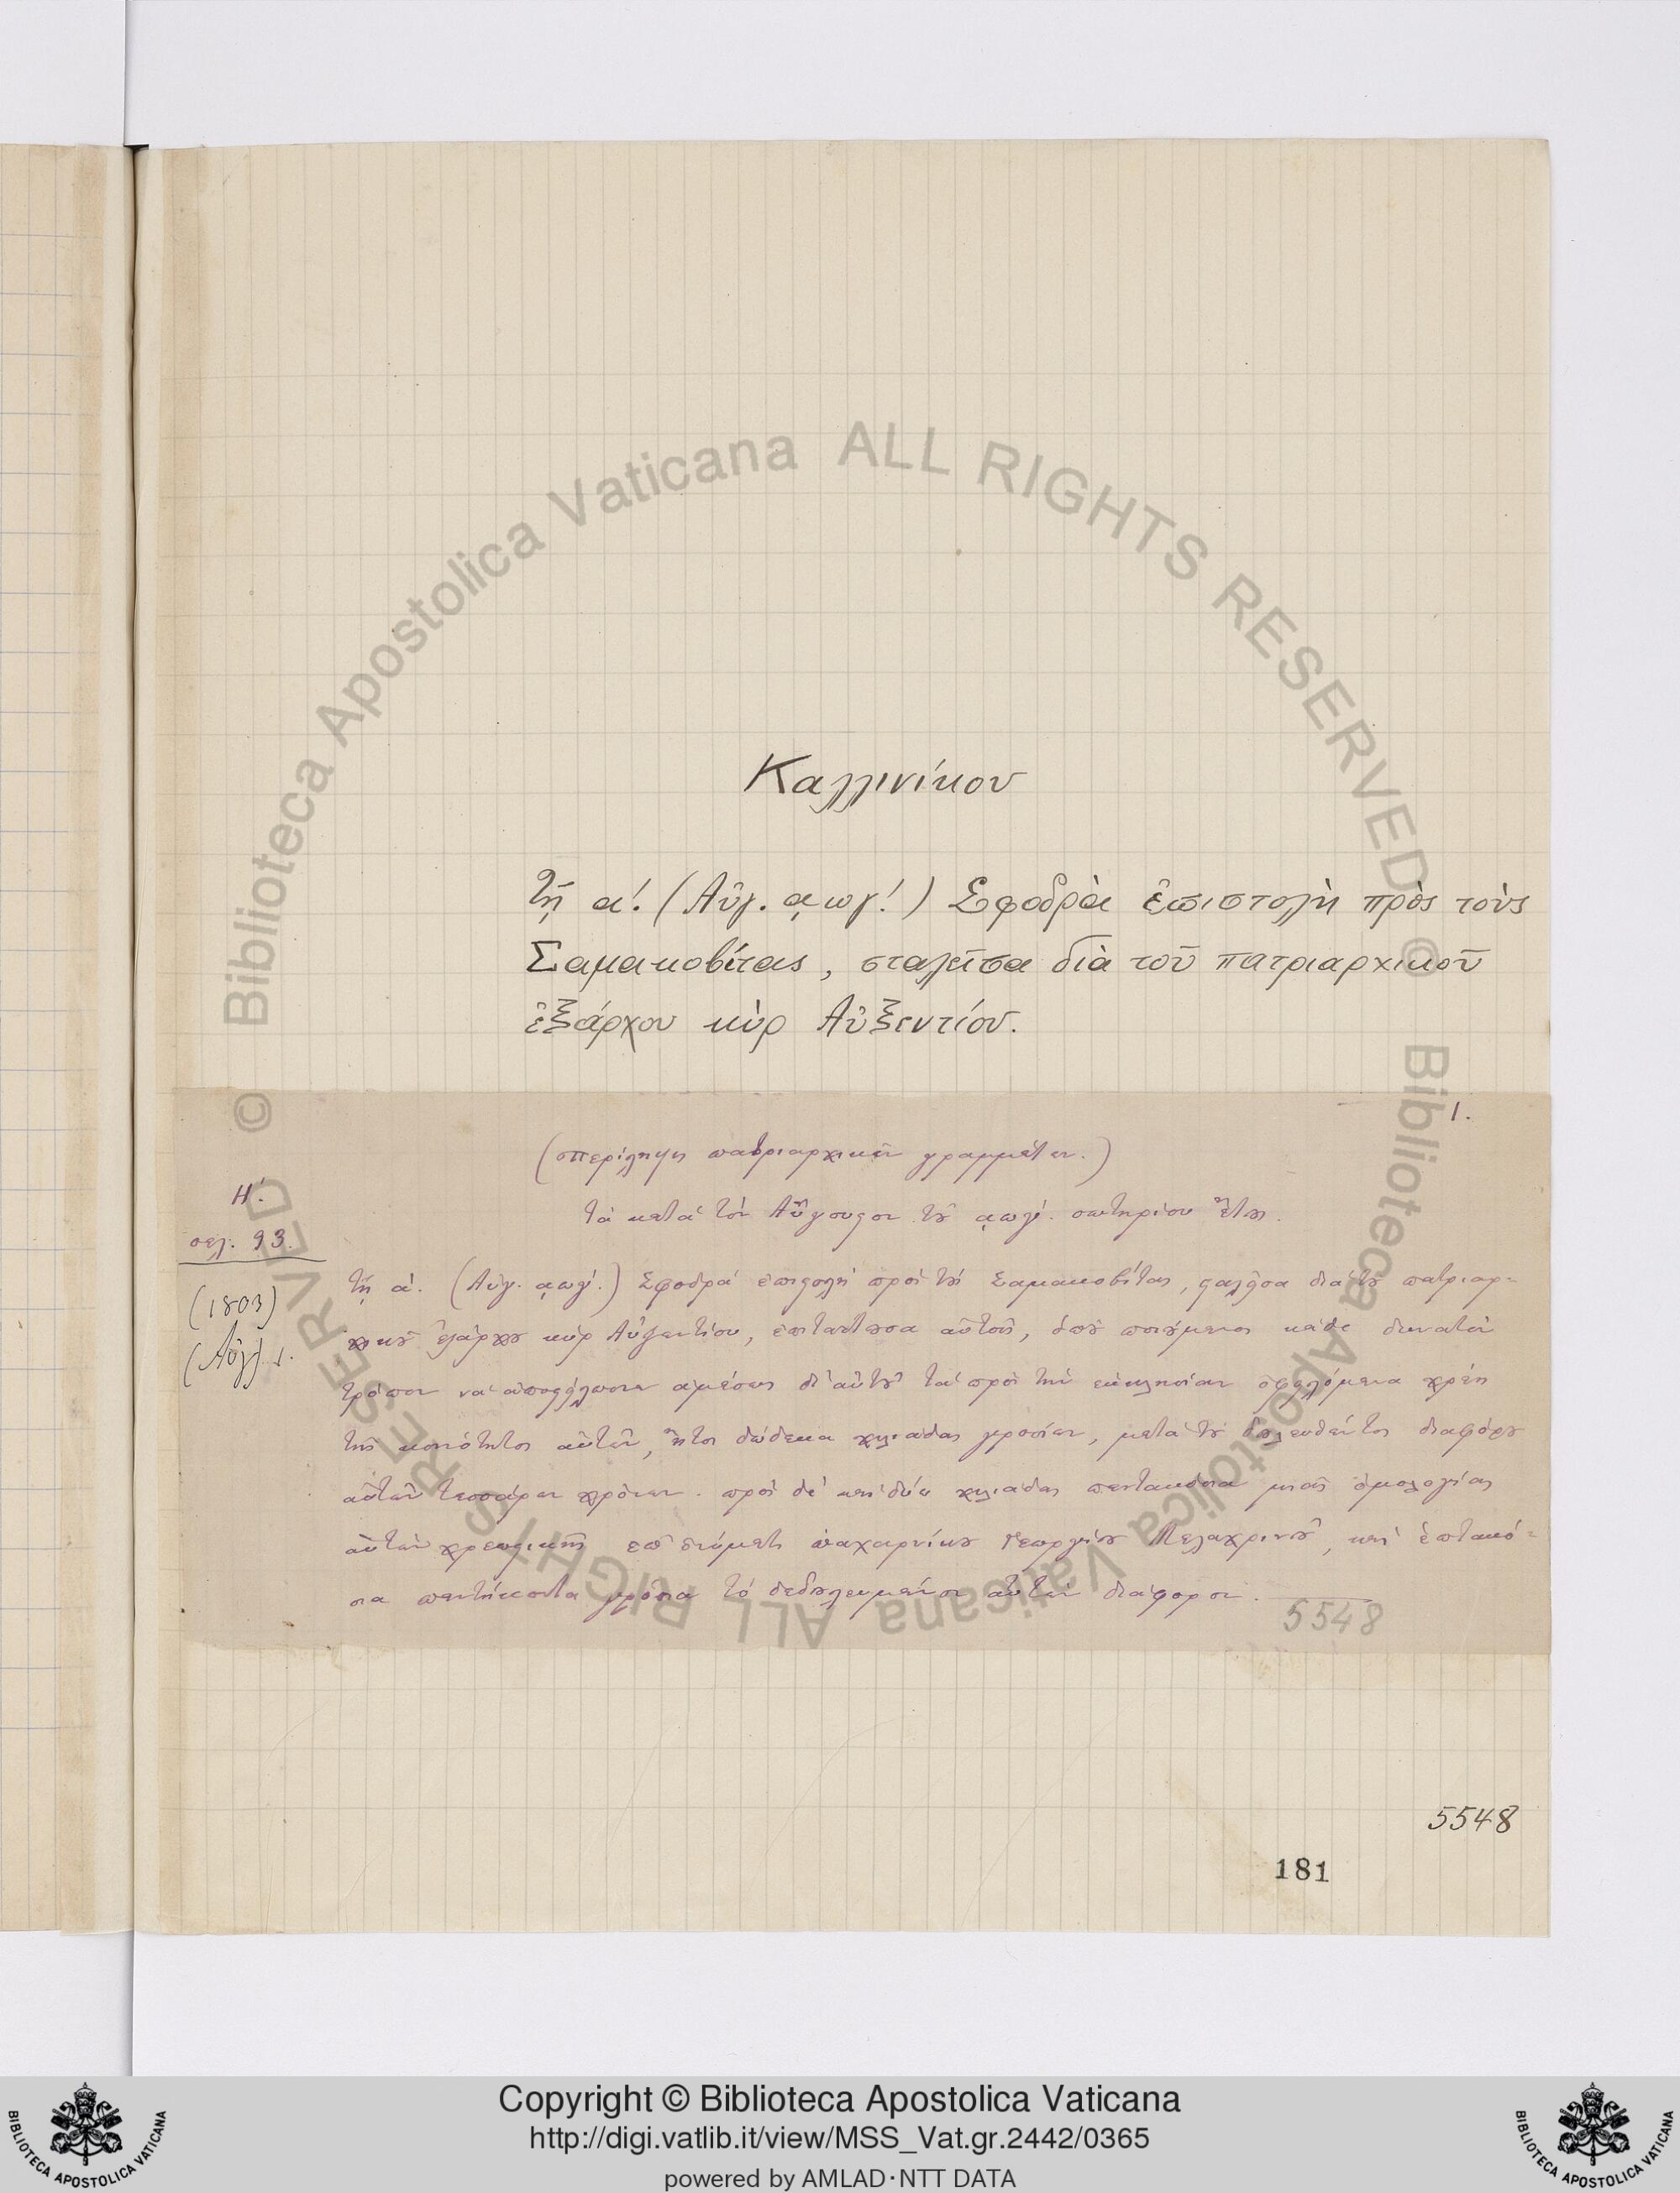 Καλλινίκου
Τῇ α΄. (Αὐγ. ͵αωγ΄.) Σφοδρὰ ἐπιστολὴ πρὸς τοὺς
Σαμακοβίτας, σταλεῖσα διὰ τοῦ πατριαρχικοῦ
ἐξάρχου κὺρ Αὐξεντίου.
1.
(περίληψις πατριαρχικῶν γραμμάτων.)
τὰ κατὰ τὸν Αὔγουστον τοῦ ͵αωγ΄. σωτηρίου ἔτους.
Η΄.
σελ. 93.
(1803)
(Αὐγ). 1.
τῇ α΄. (Αὐγ. ͵αωγ΄.) Σφοδρὰ ἐπιστολὴ πρὸς τοὺς Σαμακοβίτας, σταλεῖσα διὰ τοῦ πατριαρ-
χικοῦ ἐξάρχου κὺρ Αὐξεντίου, ἐπιτάττουσα αὐτοῖς, ὅπου ποιούμενοι κάθε δυνατὸν
τρόπον νὰ ἀποστείλωσιν ἀμέσως δι' αὐτοῦ τὰ πρὸς τὴν ἐκκλησίαν ὀφειλόμενα χρέη
τῆς κοινότητος αὐτῶν, ἤτοι δώδεκα χιλιάδας γροσίων, μετὰ τοῦ δουλευθέντος διαφόρου
αὐτῶν τεσσάρων χρόνων. πρὸς δὲ καὶ δύο χιλιάδας πεντακόσια μιᾶς ὁμολογίας
αὐτῶν χρεωστικῆς ἐπ' ὀνόματι μακαρίτου Γεωργίου Μελαχρινοῦ, καὶ ἑπτακό-
σια πεντήκοντα γρόσια τὸ δεδουλευμένον αὐτῶν διάφορον.
5548
5548
181
Copyright © Biblioteca Apostolica Vaticana
http://digi.vatlib.it/view/MSS_Vat.gr.2442/0365
powered by AMLAD·NTT DATA
BIBLIOTECA APOSTOLICA VATICANA
BIBLIOTECA APOSTOLICA VATICANA
© Biblioteca Apostolica Vaticana ALL RIGHTS RESERVED © Biblioteca Apostolica Vaticana ALL RIGHTS RESERVED